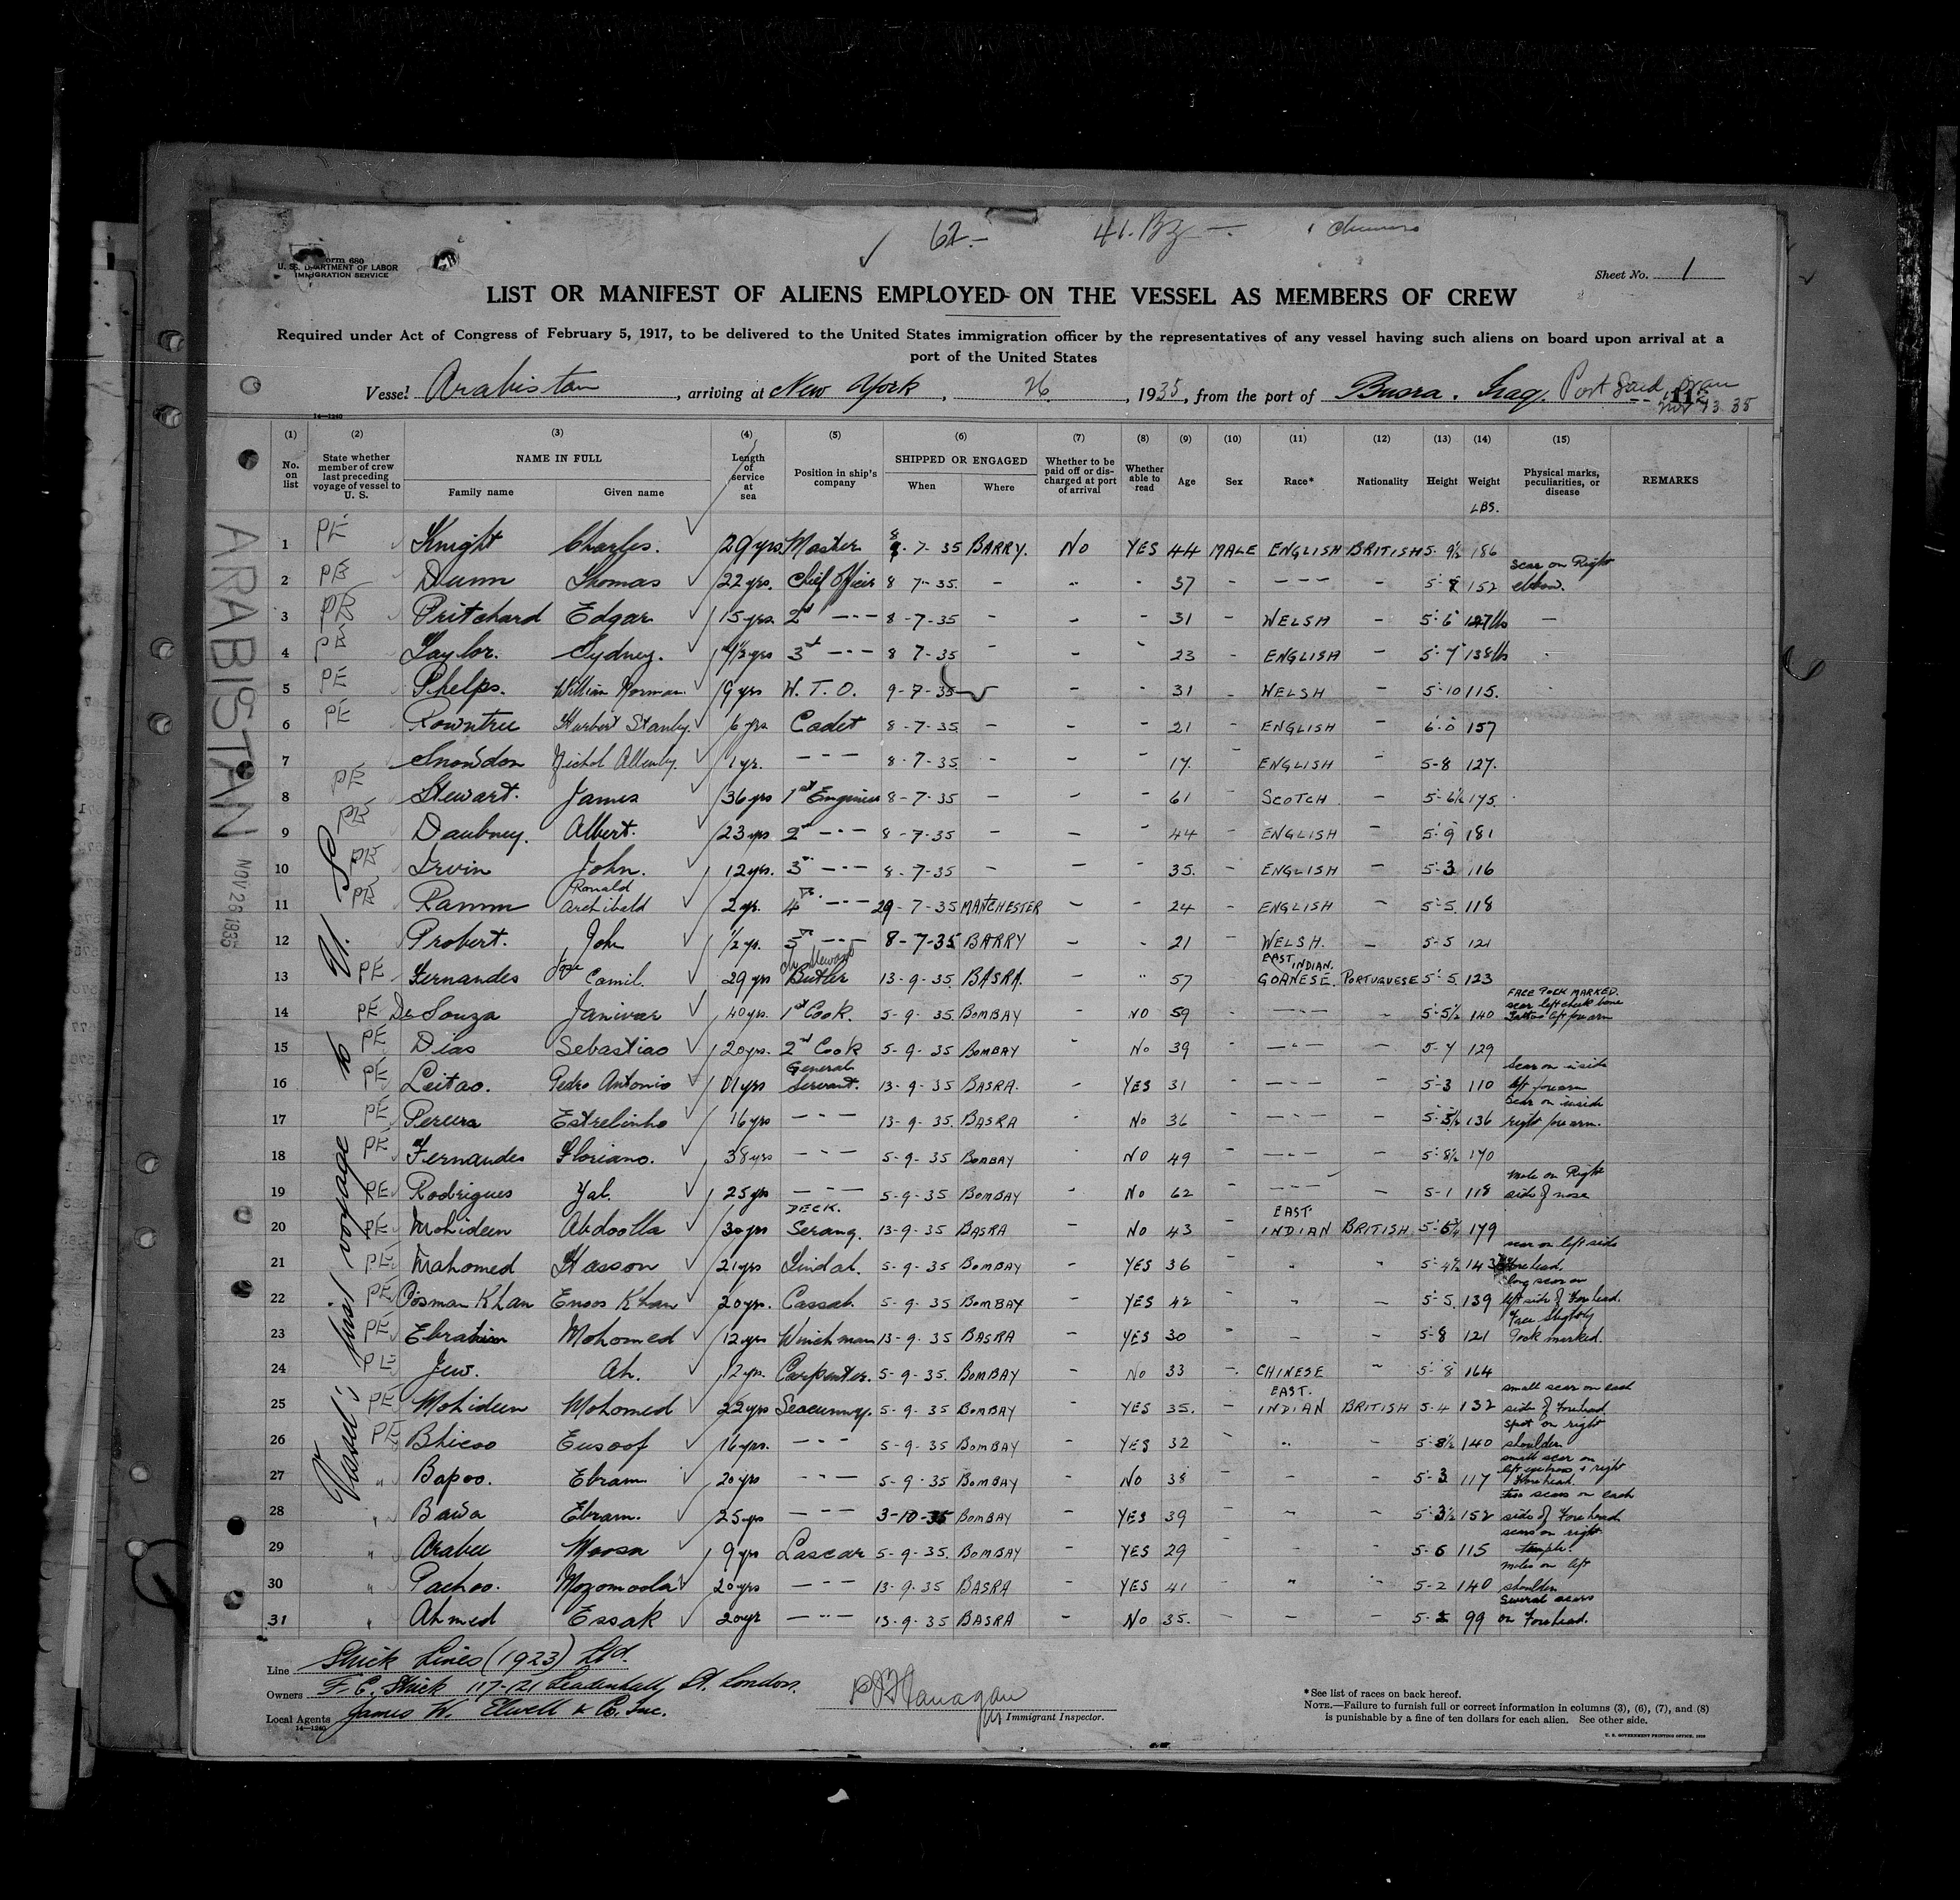 62-
Form 680
U. S. DEPARTMENT OF LABOR
IMMIGRATION SERVICE
Sheet No. 1
LIST OR MANIFEST OF ALIENS EMPLOYED ON THE VESSEL AS MEMBERS OF CREW
Required under Act of Congress of February 5, 1917, to be delivered to the United States immigration officer by the representatives of any vessel having such aliens on board upon arrival at a
port of the United States
Vessel Arabistan, arriving at New York, 26, 1935, from the port of Busra. Iraq. Port Said Oran
Nov 13 35
14—1240
(1) (2) (3) (4) (5) (6) (7) (8) (9) (10) (11) (12) (13) (14) (15)
No. on list State whether member of crew last preceding voyage of vessel to U. S. NAME IN FULL Family name Given name Length of service at sea Position in ship's company SHIPPED OR ENGAGED When Where Whether to be paid off or discharged at port of arrival Whether able to read Age Sex Race* Nationality Height Weight LBS. Physical marks, peculiarities, or disease REMARKS
ARABISTAN
NOV 26 1935
Vessel's first voyage to U. S.
1 PE Knight Charles. 29 yrs Master 8-7-35 BARRY. NO YES 44 MALE ENGLISH BRITISH 5-9½ 186
2 PE Dunn Thomas 22 yrs. Chief Officer 8 7-35. - - - 37 - - - - - 152 Scar on Right elbow.
3 PE Pritchard Edgar 15 yrs. 2nd - - - 8-7-35 - - - 31 - WELSH - 5-6 127lb -
4 PE Taylor. Cydney. 4½ yrs 3rd - - - 8 7-35 - - - 23 - ENGLISH - 5-7 138lb
5 PE Phelps. William Norman. 9 yrs W. T. O. 9-7-35 - - 31 - WELSH - 5-10 115.
6 PE Rowntree Herbert Stanley. 6 yrs Cadet 8-7-35. - - - 21 - ENGLISH 6-0 157
7 Snowdon Nichol Allenby. 1 yr. - - - 8-7-35. - - - 17. - ENGLISH 5-8 127.
8 PE Stewart. James 36 yrs 1st Engineer 8-7-35 - - - 61 - SCOTCH - 5-6½ 175.
9 PE Daubney. Albert. 23 yrs 2nd - - - 8-7-35 - - - 44 - ENGLISH - 5-9 181
10 PE Irvin John. 12 yrs. 3rd - - - 8-7-35 - - - 35. - ENGLISH - 5-3 116
11 PE Ramm Ronald Archibald 2 yr. 4th - - - 29-7-35 MANCHESTER - - 24 - ENGLISH - 5-5. 118
12 Probert. John ½ yr. 5th - - - 8-7-35 BARRY - - 21 WELSH. - 5-5 121
13 PE Fernandes Jose Camil. 29 yrs Ch Steward Butler 13-9-35. BASRA. - " 57 EAST INDIAN. GOANESE. PORTUGUESE 5-5 123
14 PE De Souza Janivar 40 yrs. 1st Cook. 5-9-35. BOMBAY NO 59 - - - - - 5-5½ 140 FACE POCK MARKED. scar left cheek bone Tattoo left forearm
15 PE Dias Sebastiao 20 yrs. 2nd Cook 5-9-35 BOMBAY No 39 - - - - 5-7 129
16 PE Leitao. Pedro Antonio 11 yrs General Servant. 13-9-35 BASRA. - YES 31 - - - - 5-3 110 Scar on inside left forearm
17 PE Pereira Estrelinho 16 yrs - - - 13-9-35. BASRA No 36 - - - - 136 Scar on inside right forearm.
18 PE Fernandes Floriano. 38 yrs - - - 5-9-35 BOMBAY NO 49 - - - - 5-8½ 170
19 PE Rodrigues Yal. 25 yrs - - - 5-9-35 BOMBAY - No 62 - - - - 5-1 118 Mole on Right side of nose
20 PE Mohideen Abdoolla 30 yrs DECK. Serang. 13-9-35 BASRA No 43 - EAST INDIAN BRITISH 179
21 PE Mahomed Hasson 21 yrs Tindal. 5-9-35 BOMBAY - YES 36 " " 5-4½ 143 scar on left side forehead.
22 PE Oosman Khan Enoos Khan 20 yrs. Cassab. 5-9-35 BOMBAY - YES 42 - " - 5-5. 139 long scar on left side of Forehead.
23 PE Ebrahim Mohomed 12 yrs Winchman 13-9-35 BASRA - YES 30 - - - 5-8 121 Face slightly Pock marked.
24 PE Jew. Ah. 12 yrs. Carpenter. 5-9-35. BOMBAY - No 33 - CHINESE " 5-8 164
25 PE Mohideen Mohomed 22 yrs Seacunny. 5-9-35 BOMBAY - YES 35. - EAST. INDIAN BRITISH 5-4 132 small scar on each side of Forehead
26 PE Bhicoo Eusoof 16 yrs. - - - 5-9-35 BOMBAY - YES 32 - " - 5-8½ 140 Spot on right shoulder
27 " Bapoo. Ebram 20 yrs - - - 5-9-35 BOMBAY - No 38 - - - 5-3 117 small scar on left eyebrow & right Forehead
28 " Bawa Ebram. 25 yrs - - - 3-10-35 BOMBAY YES 39 " - 5-3½ 152 two scars on each side of Forehead
29 " Arabee Moosa 9 yrs Lascar 5-9-35. BOMBAY - YES 29 - - - 5-6 115 scars on right temple.
30 " Pachoo. 20 yrs - - - 13-9-35 BASRA - YES 41 - " 5-2 140 moles on left shoulder
31 " Ahmed Essak 20 yr - - - 13-9-35 BASRA - No 35. - - - 99 Several scars on Forehead.
Line Strick Lines (1923) Ltd.
Owners F. C. Strick 117-121 Leadenhall St. London.
Local Agents James W. Elwell & Co. Inc.
14—1240
P J Flanagan
Immigrant Inspector.
*See list of races on back hereof.
NOTE.—Failure to furnish full or correct information in columns (3), (6), (7), and (8)
is punishable by a fine of ten dollars for each alien. See other side.
U. S. GOVERNMENT PRINTING OFFICE